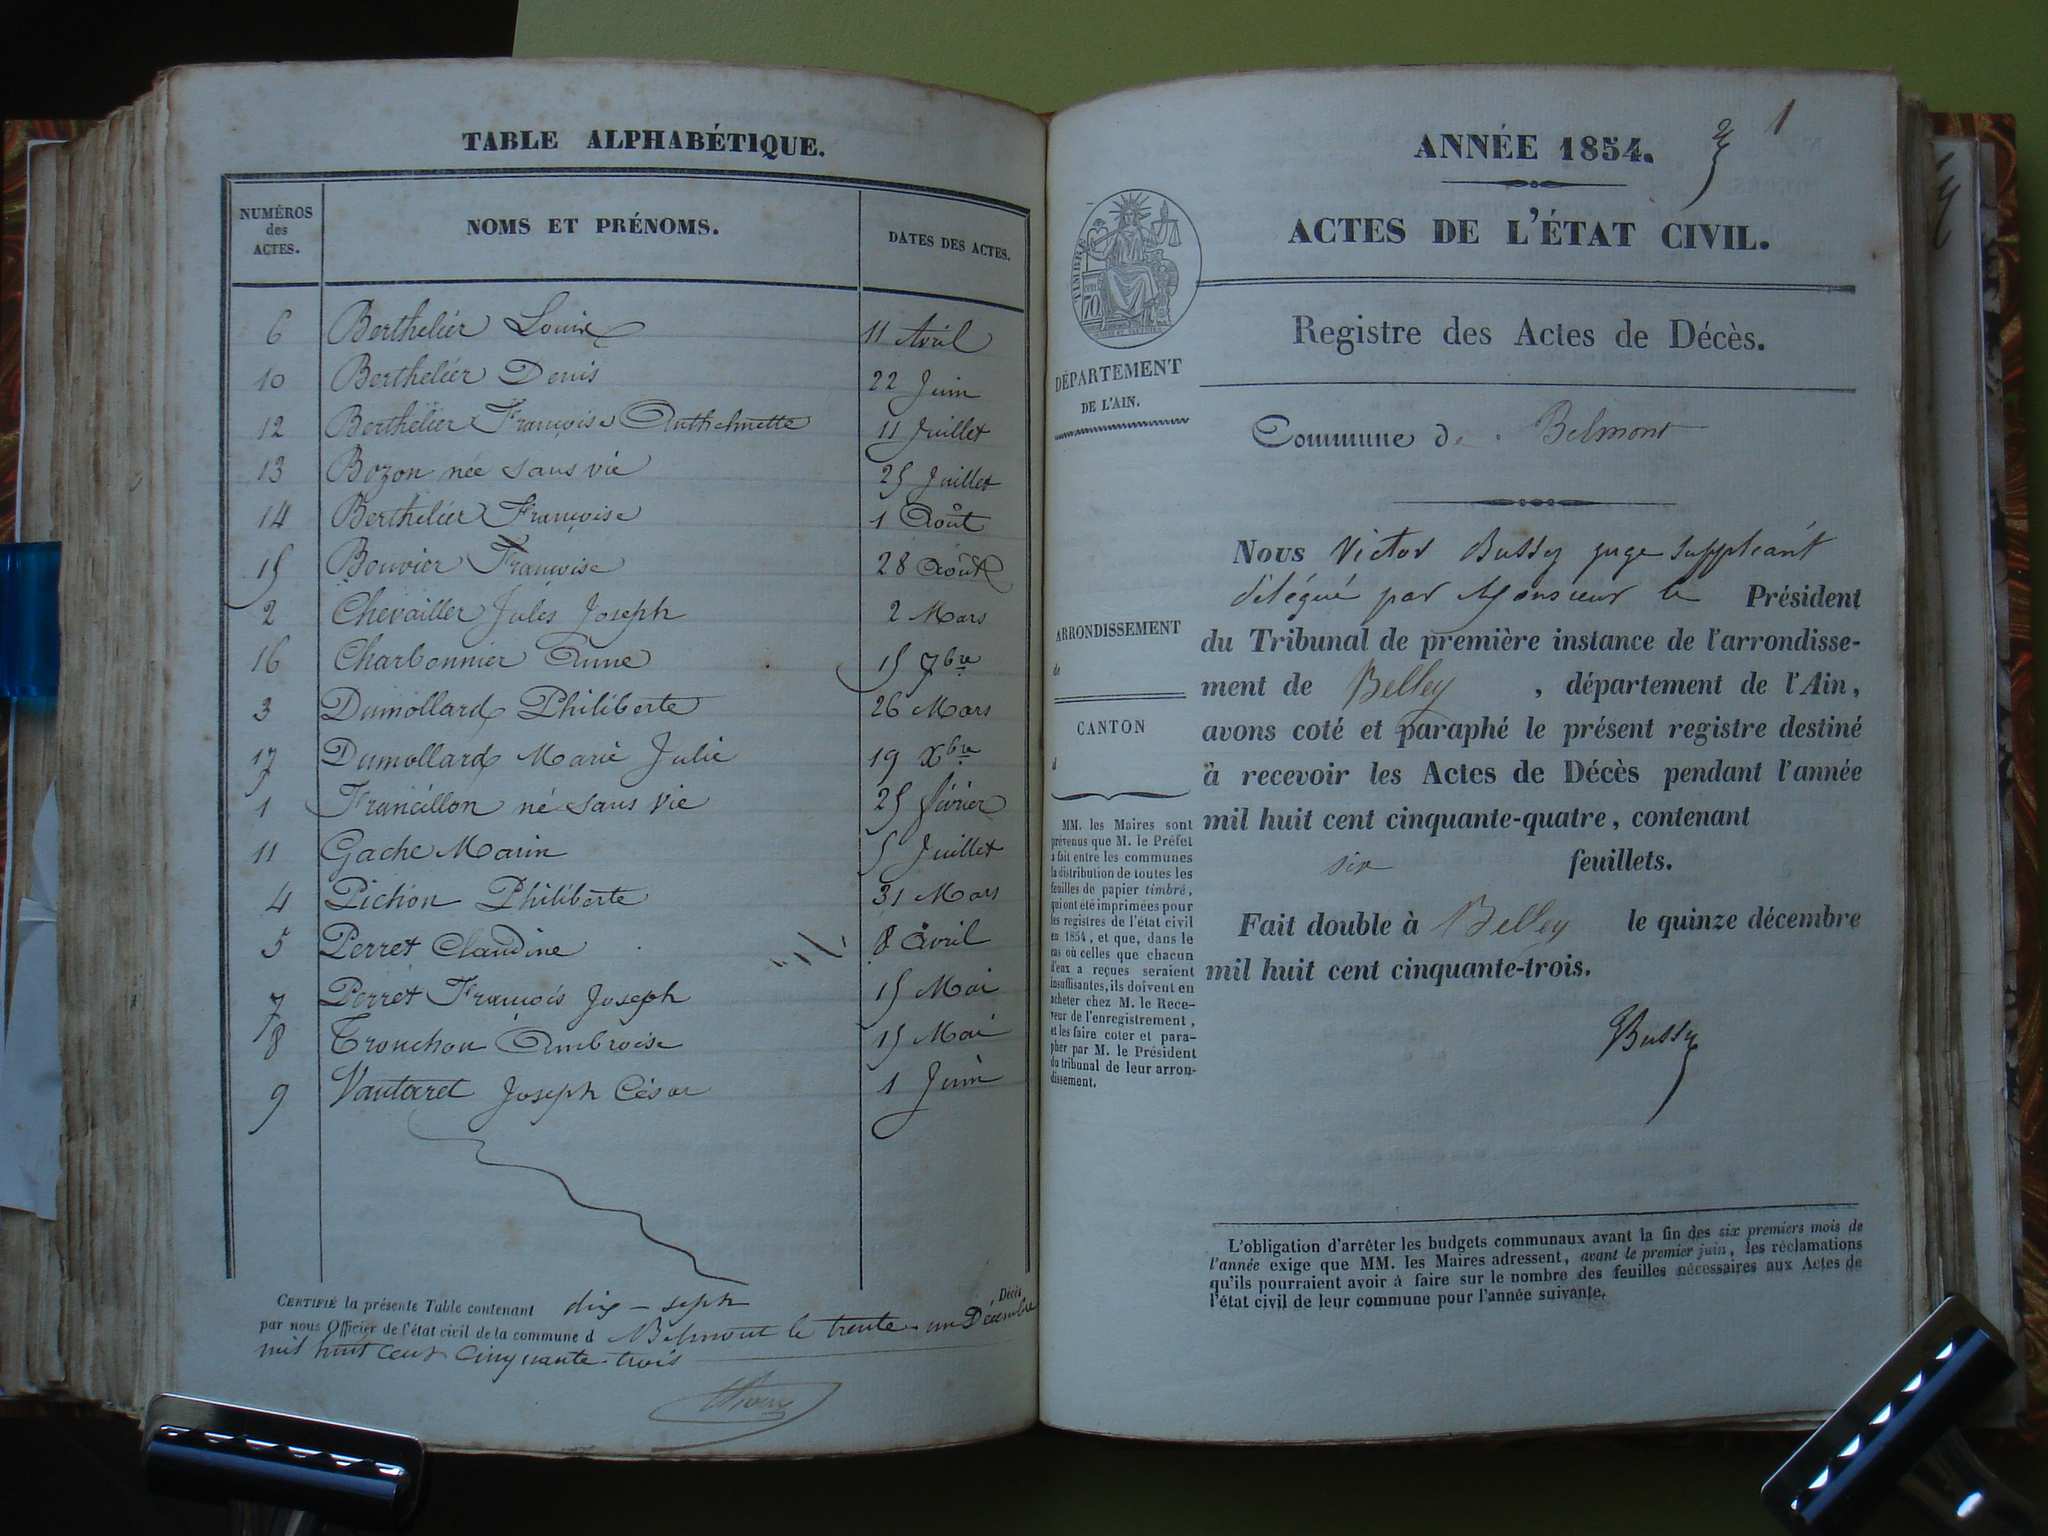 TABLE ALPHABÉTIQUE.
NUMÉROS des ACTES. NOMS ET PRÉNOMS. DATES DES ACTES.
6 Berthelier Louise 11 Avril
10 Berthelier Denis 22 Juin
12 Berthelier Françoise Anthelmette 11 Juillet
13 Bozon née sans vie 25 Juillet
14 Berthelier Françoise 1 Août
15 Bouvier Françoise 28 Août
2 Chevailler Jules Joseph 2 Mars
16 Charbonnier Anne 15 7bre
3 Dumollard Philiberte 26 Mars
17 Dumollard Marie Julie 19 Xbre
1 Francillon né sans vie 25 février
11 Gache Marin 5 Juillet
4 Pichon Philiberte 31 Mars
5 Perret Claudine 8 avril
7 Perret François Joseph 15 Mai
8 Tronchon Ambroise 15 Mai
9 Vautaret Joseph César 1 Juin
CERTIFIÉ la présente Table contenant dix-sept Décès
par nous Officier de l'état civil de la commune d Belmont le trente-un Décembre
mil huit cent cinquante-trois
1
ANNÉE 1854.
ACTES DE L'ÉTAT CIVIL.
TIMBRE
70
Registre des Actes de Décès.
DÉPARTEMENT
DE L'AIN.
Commune de Belmont
Nous Victor Bussy juge suppléant
délégué par Monsieur le Président
ARRONDISSEMENT
de
du Tribunal de première instance de l'arrondisse-
ment de Belley, département de l'Ain,
CANTON
d
avons coté et paraphé le présent registre destiné
à recevoir les Actes de Décès pendant l'année
mil huit cent cinquante-quatre, contenant
six feuillets.
Fait double à Belley le quinze décembre
mil huit cent cinquante-trois.
Bussy
MM. les Maires sont
prévenus que M. le Préfet
a fait entre les communes
la distribution de toutes les
feuilles de papier timbré,
qui ont été imprimées pour
les registres de l'état civil
en 1854, et que, dans le
cas où celles que chacun
d'eux a reçues seraient
insuffisantes, ils doivent en
acheter chez M. le Rece-
veur de l'enregistrement,
et les faire coter et para-
pher par M. le Président
du tribunal de leur arron-
dissement.
L'obligation d'arrêter les budgets communaux avant la fin des six premiers mois de
l'année exige que MM. les Maires adressent, avant le premier juin, les réclamations
qu'ils pourraient avoir à faire sur le nombre des feuilles nécessaires aux Actes de
l'état civil de leur commune pour l'année suivante.